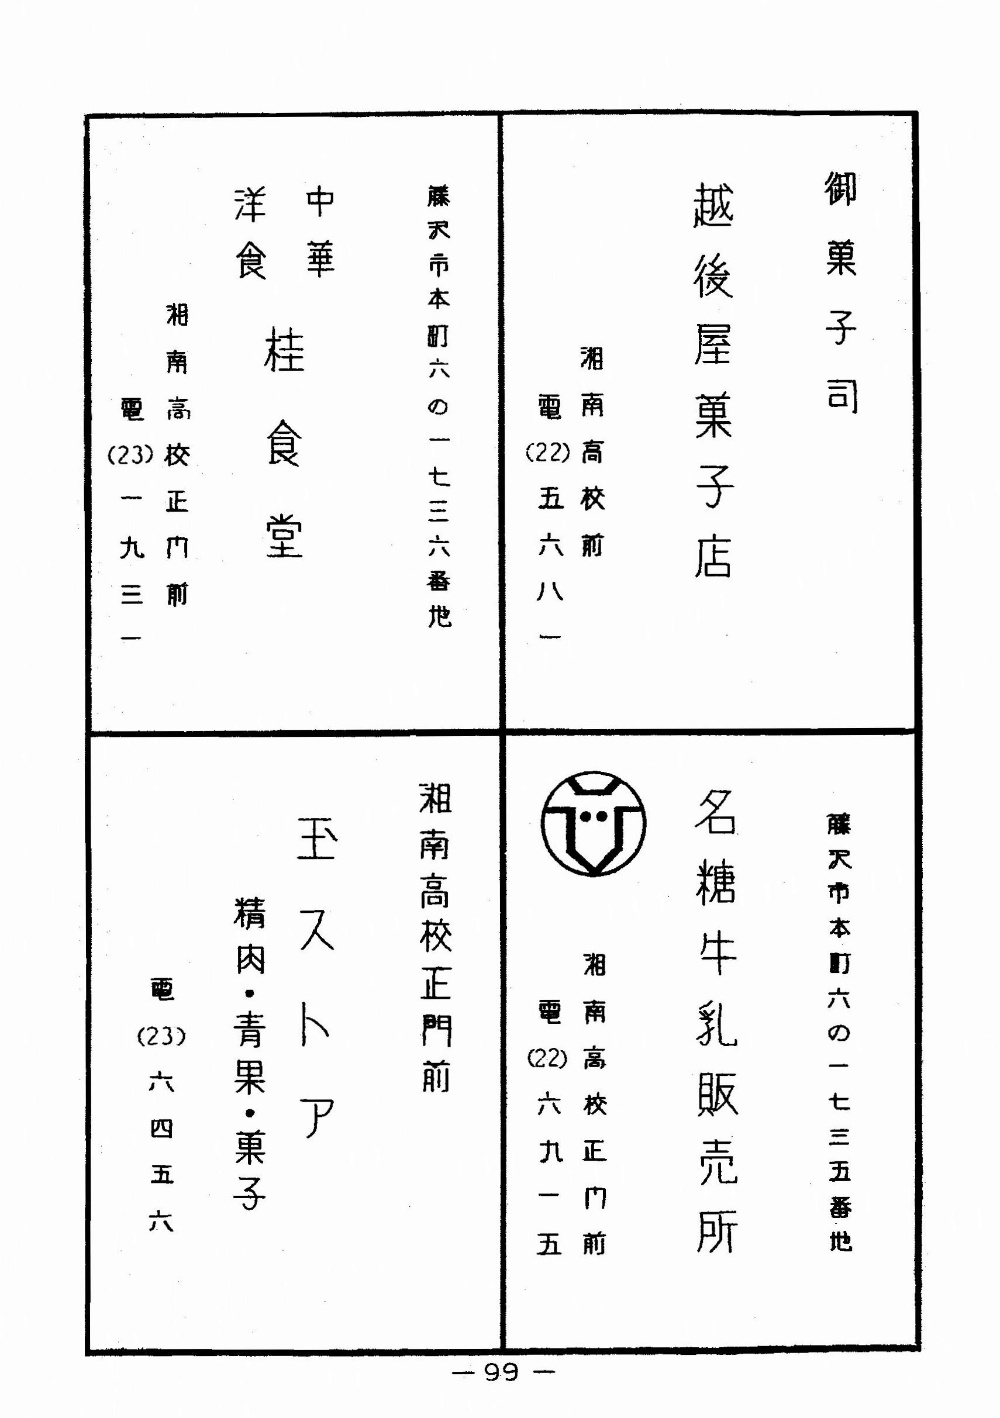 御菓子司
越後屋菓子店
湘南高校前
電(22)五六八一
藤沢市本町六の一七三六番地
中華
洋食
桂食堂
湘南高校正門前
電(23)一九三一
藤沢市本町六の一七三五番地
名糖牛乳販売所
湘南高校正門前
電(22)六九一五
湘南高校正門前
玉ストア
精肉・青果・菓子
電(23)六四五六
— 99 —